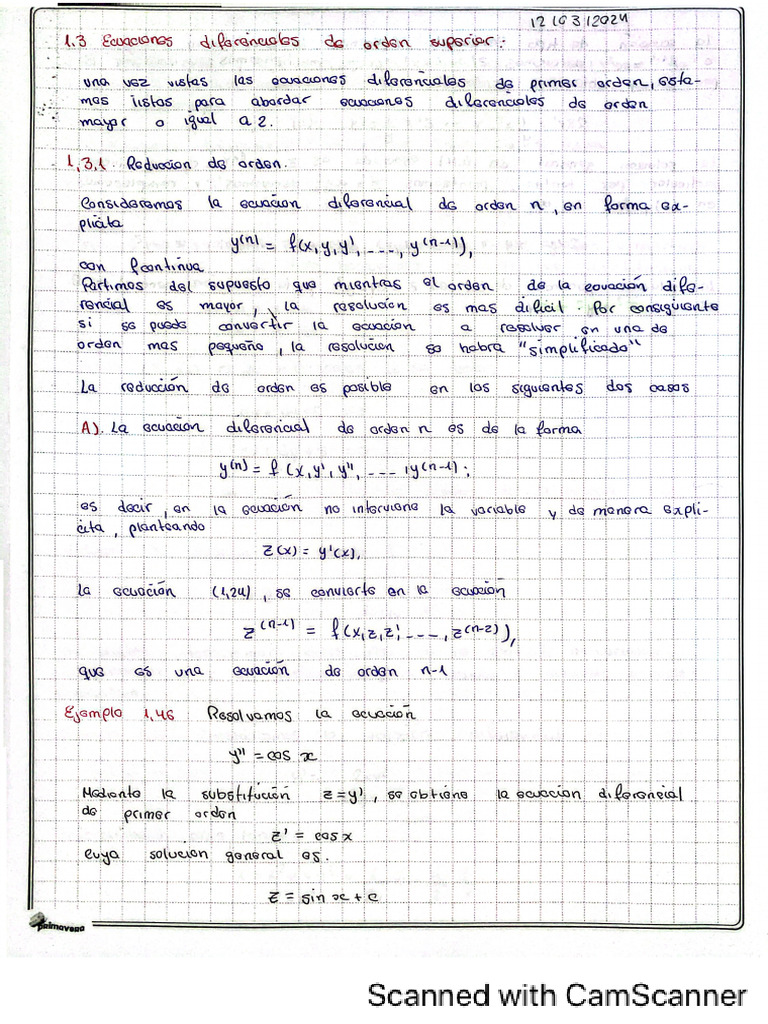 12/03/2024
1.3 Ecuaciones diferenciales de orden superior:
una vez vistas las ecuaciones diferenciales de primer orden, esta-
mos listos para abordar ecuaciones diferenciales de orden
mayor o igual a 2.
1,3,1 Reduccion de orden.
Consideremos la ecuación diferencial de orden n, en forma ex-
plicita
y(n) = f(x, y, y', ..., y(n-1)),
con f continua
Partimos del supuesto que mientras el orden de la ecuación dife-
rencial es mayor, la resolución es mas dificil. Por consiguiente
si se puede convertir la ecuación a resolver en una de
orden mas pequeño, la resolucion se habra "simplificado"
La reducción de orden es posible en los siguientes dos casos
A). La ecuación diferencial de orden n es de la forma
y(n) = f (x, y', y'', ..., y(n-1);
es decir, en la ecuación no interviene la variable y de manera explí-
cita, planteando
z(x) = y'(x),
la ecuación (1,24), se convierte en la ecuación
z(n-1) = f(x, z, z', ..., z(n-2)),
que es una ecuación de orden n-1
Ejemplo 1,46 Resolvamos la ecuación
y'' = cos x
Mediante la substitución z=y', se obtiene la ecuacion diferencial
de primer orden
z' = cos x
cuya solucion general es.
z = sin x + c
primavera
Scanned with CamScanner